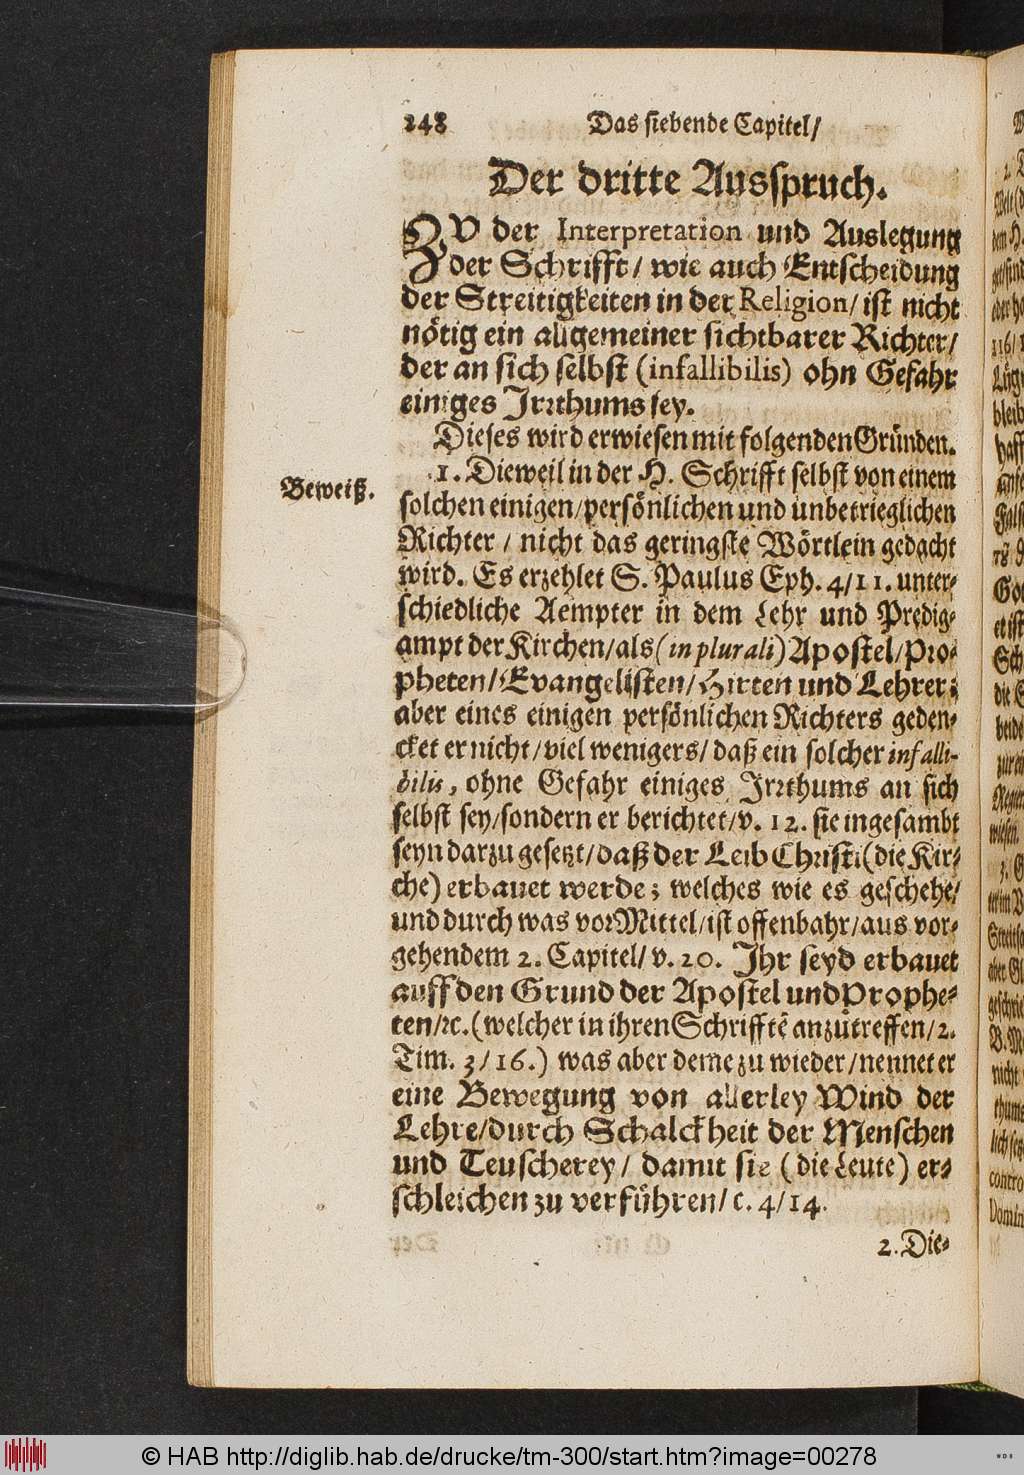 248 Das siebende Capitel/
Der dritte Ausspruch.
ZV der Interpretation und Auslegung
der Schrifft/ wie auch Entscheidung
der Streitigkeiten in der Religion/ ist nicht
nötig ein allgemeiner sichtbarer Richter/
der an sich selbst (infallibilis) ohn Gefahr
einiges Irrthums sey.
Dieses wird erwiesen mit folgenden Gründen.
Beweiß.
1. Dieweil in der H. Schrifft selbst von einem
solchen einigen/persönlichen und unbetrieglichen
Richter / nicht das geringste Wörtlein gedacht
wird. Es erzehlet S. Paulus Eph. 4/11. unter-
schiedliche Aempter in dem Lehr und Predig-
ampt der Kirchen/als (in plurali) Apostel/Pro-
pheten/Evangelisten/Hirten und Lehrer;
aber eines einigen persönlichen Richters geden-
cket er nicht/viel wenigers/ daß ein solcher infalli-
bilis, ohne Gefahr einiges Irrthums an sich
selbst sey/sondern er berichtet/v. 12. sie ingesambt
seyn darzu gesetzt/daß der Leib Christi(die Kir-
che) erbauet werde; welches wie es geschehe/
und durch was vor Mittel/ist offenbahr/aus vor-
gehendem 2. Capitel/ v. 20. Ihr seyd erbauet
auff den Grund der Apostel und Prophe-
ten/ꝛc.(welcher in ihren Schrifftẽ anzutreffen/2.
Tim. 3/16.) was aber deme zu wieder/nennet er
eine Bewegung von allerley Wind der
Lehre/durch Schalckheit der Menschen
und Teuscherey/ damit sie (die Leute) er-
schleichen zu verführen/ c. 4/14.
2. Die-
© HAB http://diglib.hab.de/drucke/tm-300/start.htm?image=00278